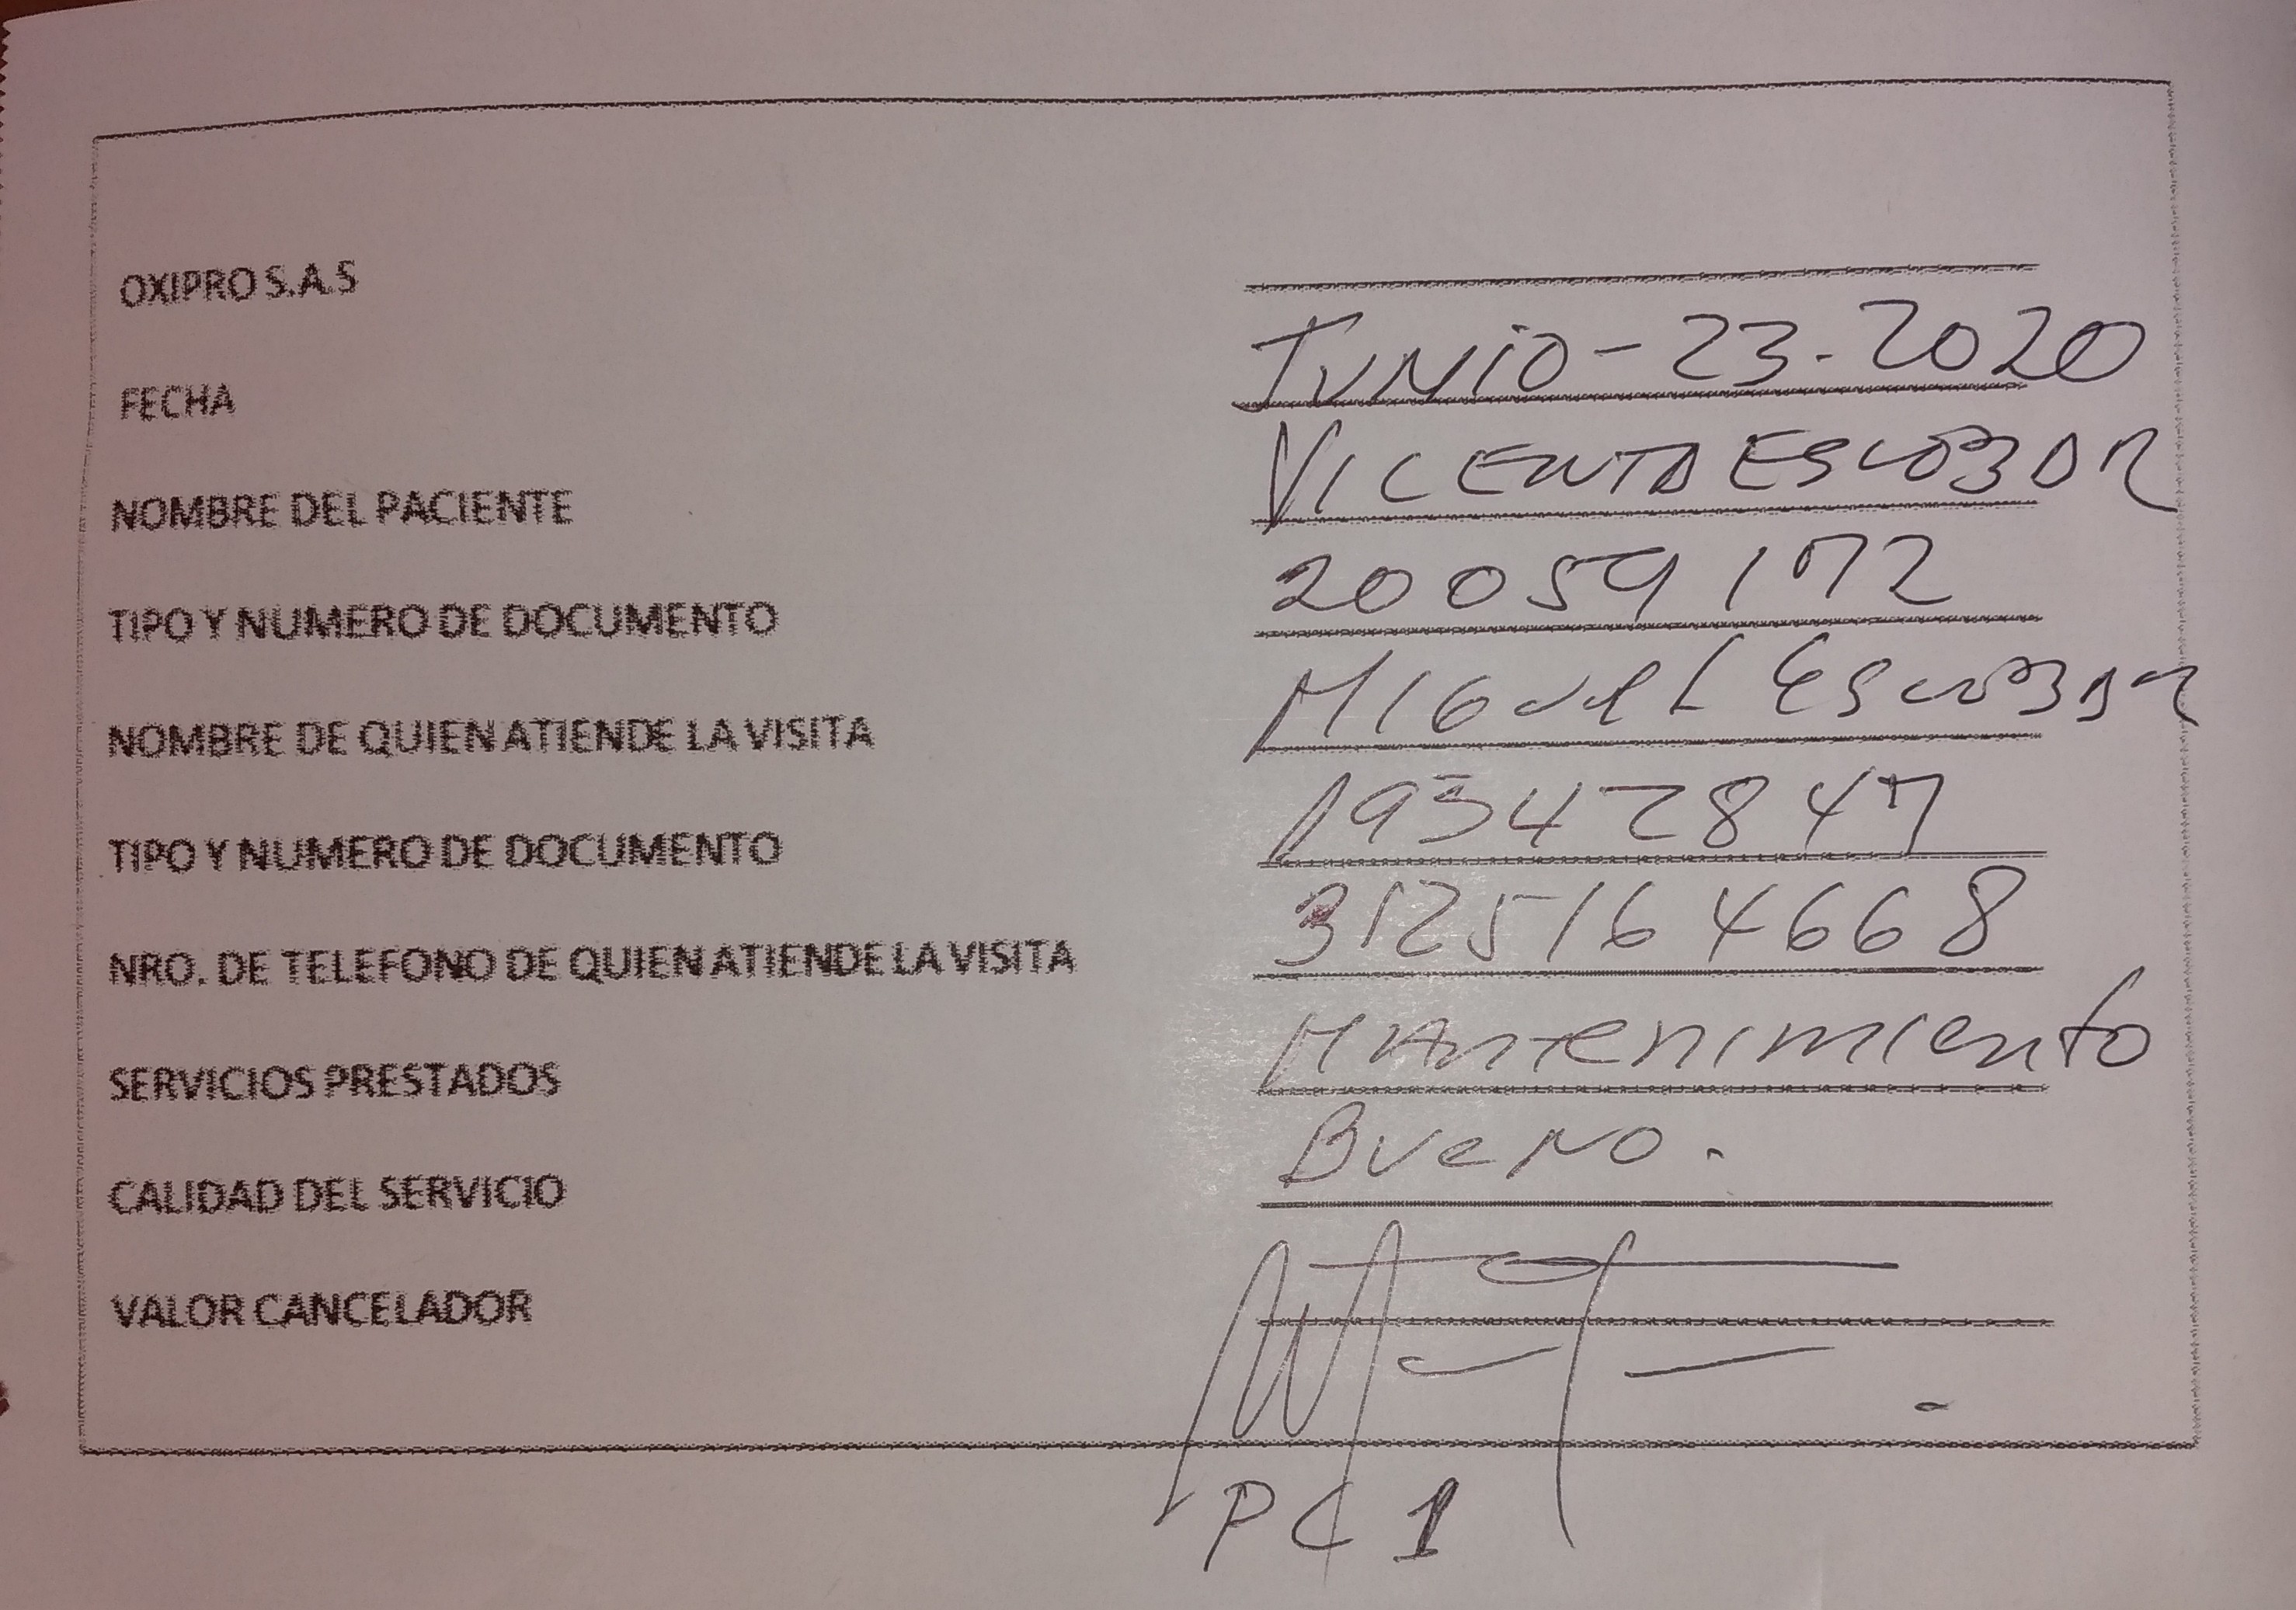 OXIPRO S.A.S
FECHA JUNIO-23-2020
NOMBRE DEL PACIENTE VICENTA ESCOBAR
TIPO Y NUMERO DE DOCUMENTO 20059172
NOMBRE DE QUIEN ATIENDE LA VISITA MIGUEL ESCOBAR
TIPO Y NUMERO DE DOCUMENTO 19342847
NRO. DE TELEFONO DE QUIEN ATIENDE LA VISITA 3125164668
SERVICIOS PRESTADOS MANTENIMIENTO
CALIDAD DEL SERVICIO BUENO.
VALOR CANCELADOR
PC 1